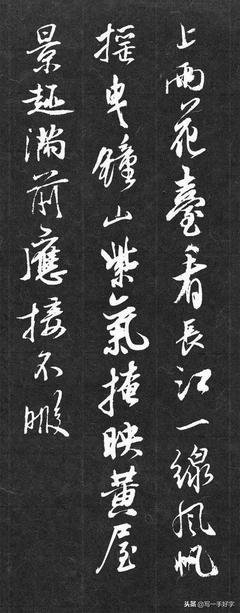 上雨花臺看長江一線風帆
搖曳鐘山紫氣掩映黃屋
景趣滿前應接不暇
头条@写一手好字